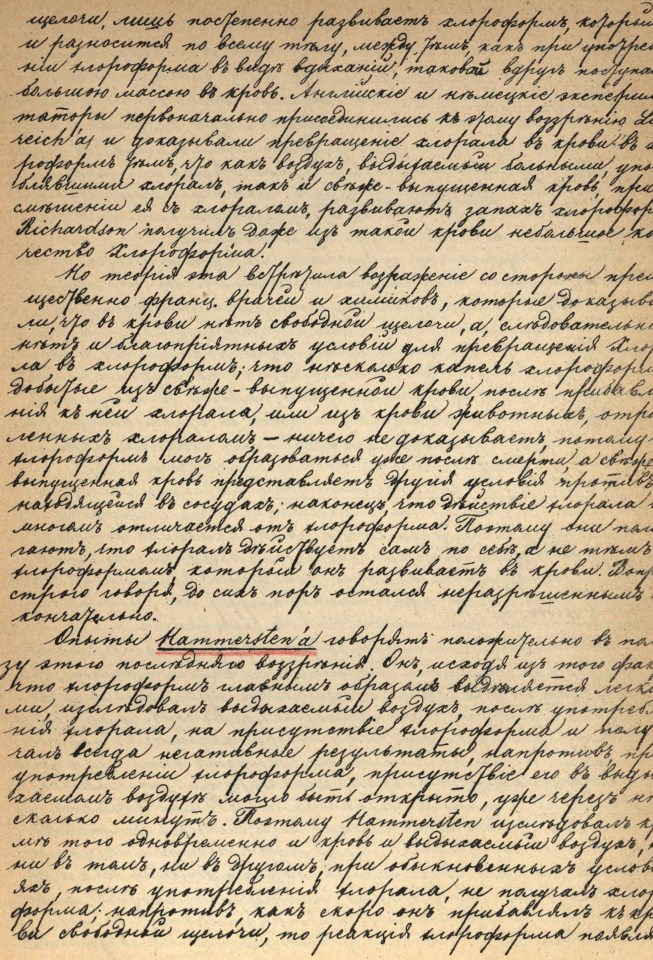 щелочи, лишь постепенно развиваетъ хлороформъ, который
и разносится по всему тѣлу, между тѣмъ, какъ при употре
ніи хлороформа въ видѣ вдыханій, таковой вдругъ поступа
большою массою въ кровь. Англійскіе и нѣмецкіе экспери
таторы первоначально присоединились къ этому воззрѣнію L
reich'а, и доказывали превращеніе хлорала въ крови въ х
роформъ тѣмъ, что какъ воздухъ, выдыхаемый больными, упо
блявшими хлоралъ, такъ и свѣже-выпущенная кровь, при
смѣшеніи ея съ хлораломъ, развиваютъ запахъ хлорофор
Richardson получилъ даже изъ такой крови небольшое ко
чество хлороформа.
Но теорія эта встрѣтила возраженіе со стороны преи
щественно франц. врачей и химиковъ, которые доказыва
ли, что въ крови нѣтъ свободной щелочи, а, слѣдовательно
нѣтъ и благопріятныхъ условій для превращенія хлор
ла въ хлороформъ; что нѣсколько капель хлороформ
добытые изъ свѣже-выпущенной крови, послѣ прибавл
нія къ ней хлорала, или изъ крови животныхъ, отра
ленныхъ хлораломъ — ничего не доказываетъ, потому
хлороформъ могъ образоваться уже послѣ смерти, а свѣже
выпущенная кровь представляетъ другія условія противъ
находящейся въ сосудахъ; наконецъ, что дѣйствіе хлорала
многимъ отличается отъ хлороформа. Поэтому они пола
гаютъ, что хлоралъ дѣйствуетъ самъ по себѣ, а не тѣмъ
хлороформомъ, который онъ развиваетъ въ крови. Вопр
строго говоря, до сихъ поръ остался неразрѣшеннымъ
кончательно.
Опыты Hammersten'а говорятъ положительно въ пол
зу этого послѣдняго воззрѣнія. Онъ, исходя изъ того фак
что хлороформъ главнымъ образомъ выдѣляется легки
ми, изслѣдовалъ выдыхаемый воздухъ, послѣ употребл
нія хлорала, на присутствіе хлороформа и полу
чалъ всегда негативные результаты, напротивъ пр
употребленіи хлороформа, присутствіе его въ выды
хаемомъ воздухѣ могло быть открыто, уже черезъ нѣ
сколько минутъ. Поэтому Hammersten изслѣдовалъ кр
мѣ того одновременно и кровь и выдыхаемый воздухъ,
ни въ томъ, ни въ другомъ, при обыкновенныхъ услов
яхъ, послѣ употребленія хлорала, не получалъ хлор
форма; напротивъ, какъ скоро онъ прибавлялъ къ кр
ви свободной щелочи, то реакція хлороформа появля